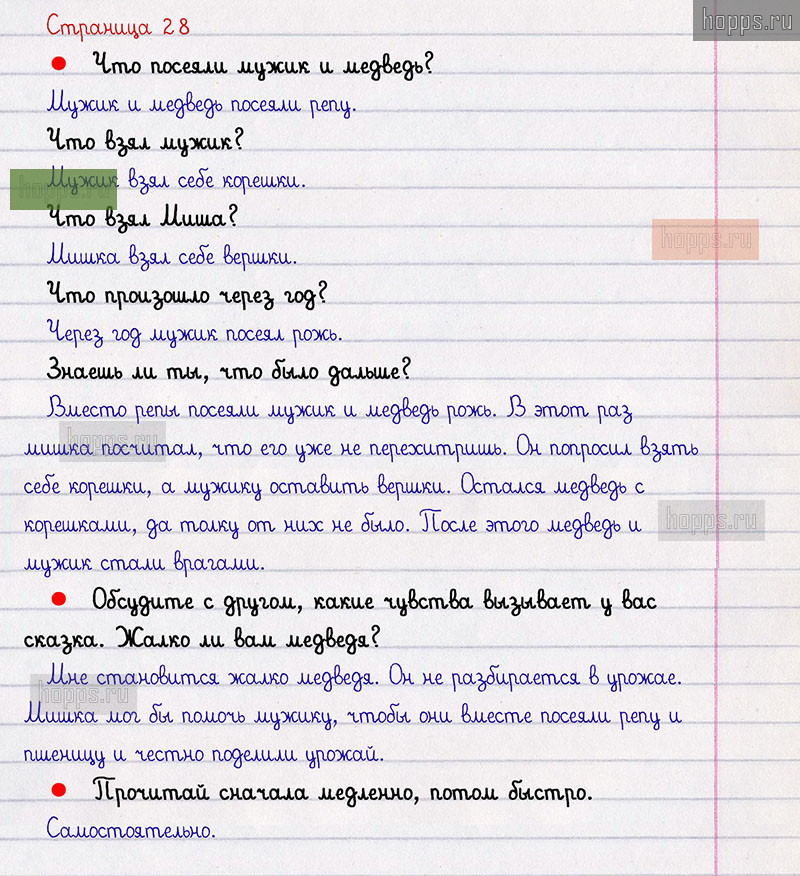 hopps.ru
Страница 28
Что посеяли мужик и медведь?
Мужик и медведь посеяли репу.
Что взял мужик?
Мужик взял себе корешки.
hopps.ru
Что взял Миша?
hopps.ru
Мишка взял себе вершки.
Что произошло через год?
Через год мужик посеял рожь.
Знаешь ли ты, что было дальше?
Вместо репы посеяли мужик и медведь рожь. В этот раз
мишка посчитал, что его уже не перехитришь. Он попросил взять
hopps.ru
себе корешки, а мужику оставить вершки. Остался медведь с
корешками, да толку от них не было. После этого медведь и
hopps.ru
мужик стали врагами.
Обсудите с другом, какие чувства вызывает у вас
сказка. Жалко ли вам медведя?
Мне становится жалко медведя. Он не разбирается в урожае.
hopps.ru
Мишка мог бы помочь мужику, чтобы они вместе посеяли репу и
пшеницу и честно поделили урожай.
Прочитай сначала медленно, потом быстро.
Самостоятельно.